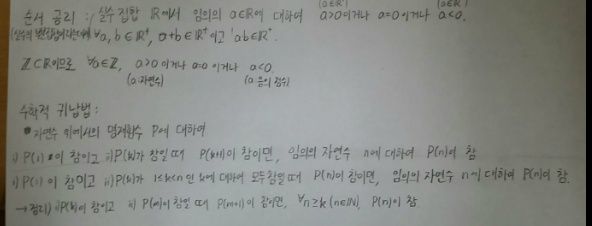 (a∈ℝ⁺) (a∈ℝ⁻)
순서 공리 : 실수 집합 ℝ에서 임의의 a∈ℝ에 대하여 a>0이거나 a=0이거나 a<0.
∀a,b∈ℝ⁺, a+b∈ℝ⁺이고 ab∈ℝ⁺.
ℤ⊂ℝ이므로 ∀a∈ℤ, a>0이거나 a=0이거나 a<0.
(a:자연수) (a:음의 정수)
수학적 귀납법 :
● 자연수 위에서의 명제함수 P에 대하여
i) P(1)이 참이고 ii) P(k)가 참일 때 P(k+1)이 참이면, 임의의 자연수 n에 대하여 P(n)이 참
i) P(1)이 참이고 ii) P(k)가 1≤k<n인 k에 대하여 모두 참일 때 P(n)이 참이면, 임의의 자연수 n에 대하여 P(n)이 참.
→정리) i) P(k)이 참이고 ii) P(m)이 참일 때 P(m+1)이 참이면, ∀n≥k (n∈ℕ), P(n)이 참